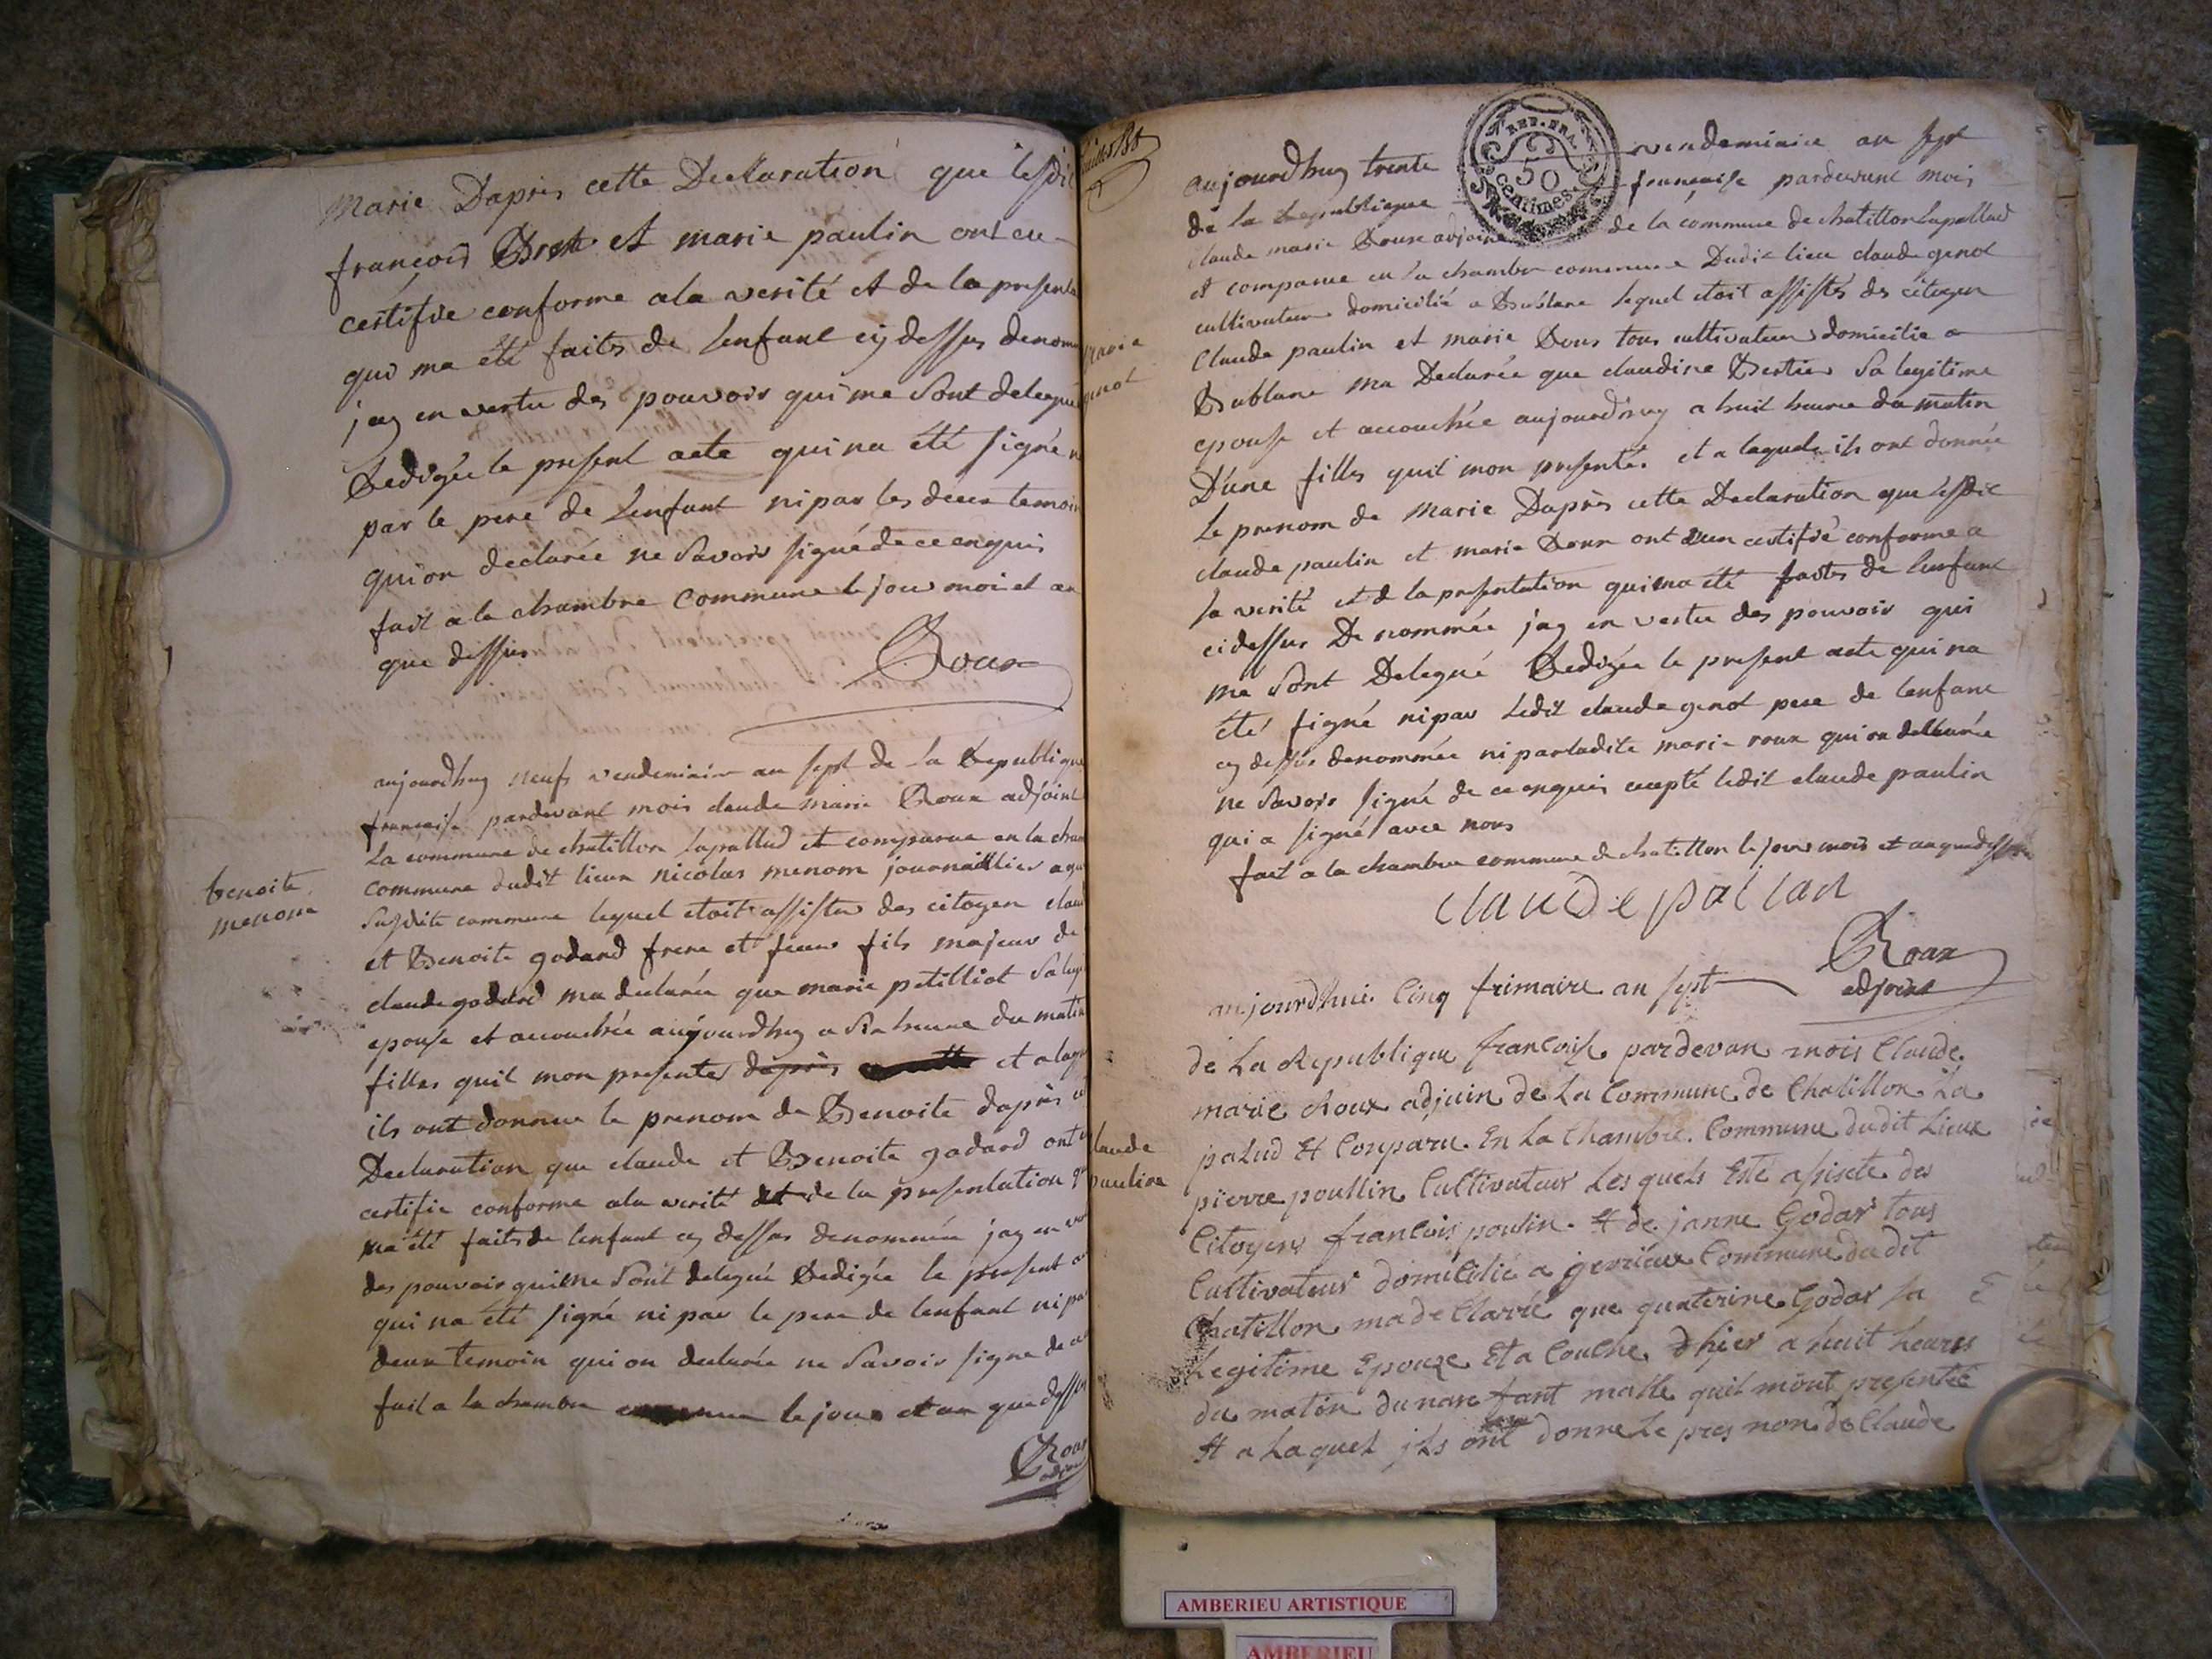 Marie Daprès cette Declaration que lesdit
francois et marie paulin ont eu
certifie conforme ala verité et de la presenta
qui ma été faits de lenfant cy dessus denom
jay en vertu des pouvoir qui me sont delegué
Redigée le present acte qui na été signé n
par le pere de Lenfant ni par les deux temoin
qui on declarée ne savoir signé de ce enquis
fait a la chambre Commune le jour moi et an
que dessus
Roux
benoite
menom
aujourdhuy neufs vendemiair an sept de la Republique
francaise pardevant mois claude marie Roux adjoint
la commune de chatillon lapallud et comparue en la cham
commune dudit lieux nicolas menom journaillier a
susdite commune lequel etoit assister des citoyen clau
et Benoite godard frere et fils majeur de
claude godard ma declarée que marie petilliot sa leg
epouse et accouchée aujourdhuy a six heure du matin
filles quil mon presenter daprès et a laqu
ils ont donnee le prenom de Benoite daprès
Declaration que claude et Benoite godard ont
certifie conforme ala verité et de la presentation q
ma été faits de lenfant cy dessus denommée jay en ver
des pouvoir qui me sont delegué Redigée le present a
qui na été signé ni par le pere de lenfant ni par
deux temoin qui on declarée ne savoir signe de ce
fait a la chambre le jour et an que dessus
Roux
adjoint
marie
genot
aujourdhuy trente vendemiaire an sept
REP. FRA.
50
centimes.
de la Republique française pardevant mois
claude marie Roux adjoint de la commune de chatillon lapallud
et comparue en la chambre commune Dudit lieu claude genot
cultivateur domicilié a Bublane lequel etoit assistés des citoyen
Claude paulin et marie Roux tous cultivateur domicilie a
Bublane ma Declarée que claudine Bertier sa legitime
epouse et accouchée aujourdhuy a huit heure du matin
D'une filles quil mon presentés et a laquele ils ont donnée
Le prenom de Marie Daprès cette Declaration que lesdit
claude paulin et marie Roux ont certifié conforme a
la verité et d la presentation qui ma été faites de lenfant
cidessus Denommée jay en vertu des pouvoir qui
me sont Delegué Redigée le present acte qui na
été signé ni par Ledit claude genot pere de lenfant
cy dessus denommée ni par ladite marie roux qui on declarée
ne savoir signé de ce enquis cepté ledit claude paulin
qui a signé avec nous
fait a la chambre commune de chatillon le jour mois et an que dessus
claude
Roux
adjoint
laude
pauline
aujourdhui Cinq frimaire an sept
de La Republique francoise pardevan mois Claude
marie Roux adjuin de La Commune de Chatillon La
palud Et Conparu En La Chambre Commune dudit Lieux
pierre poullin Cultivateur Les quels Esté asisete des
Citoyens francois poulin Et de janne Godar tous
Cultivateur domicilié a gevrieux Commune dudit
Chatillon ma de Clarré que quaterine Godar sa
Legitime Epouze Et a Couche dhier a huit heures
du matin du nan fant malle quil mont presentée
Et a Laquel jls ont donne Le pres non de Claude
AMBERIEU ARTISTIQUE
AMBERIEU